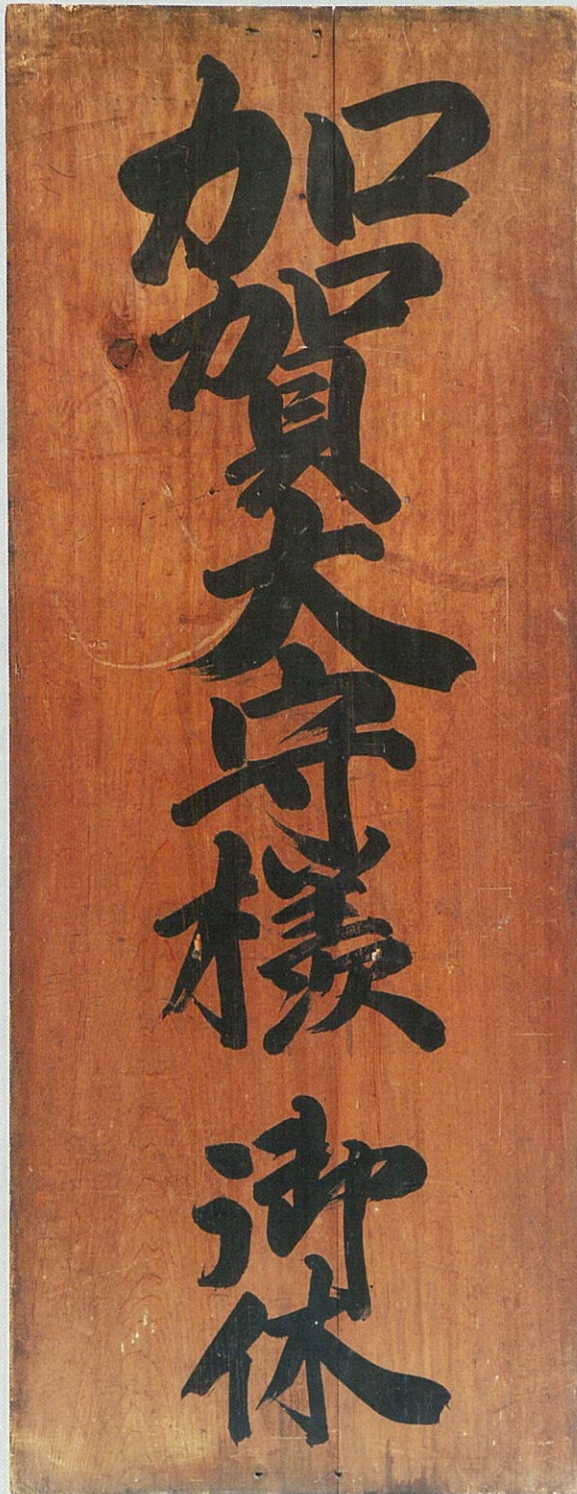 加賀大守様 御休